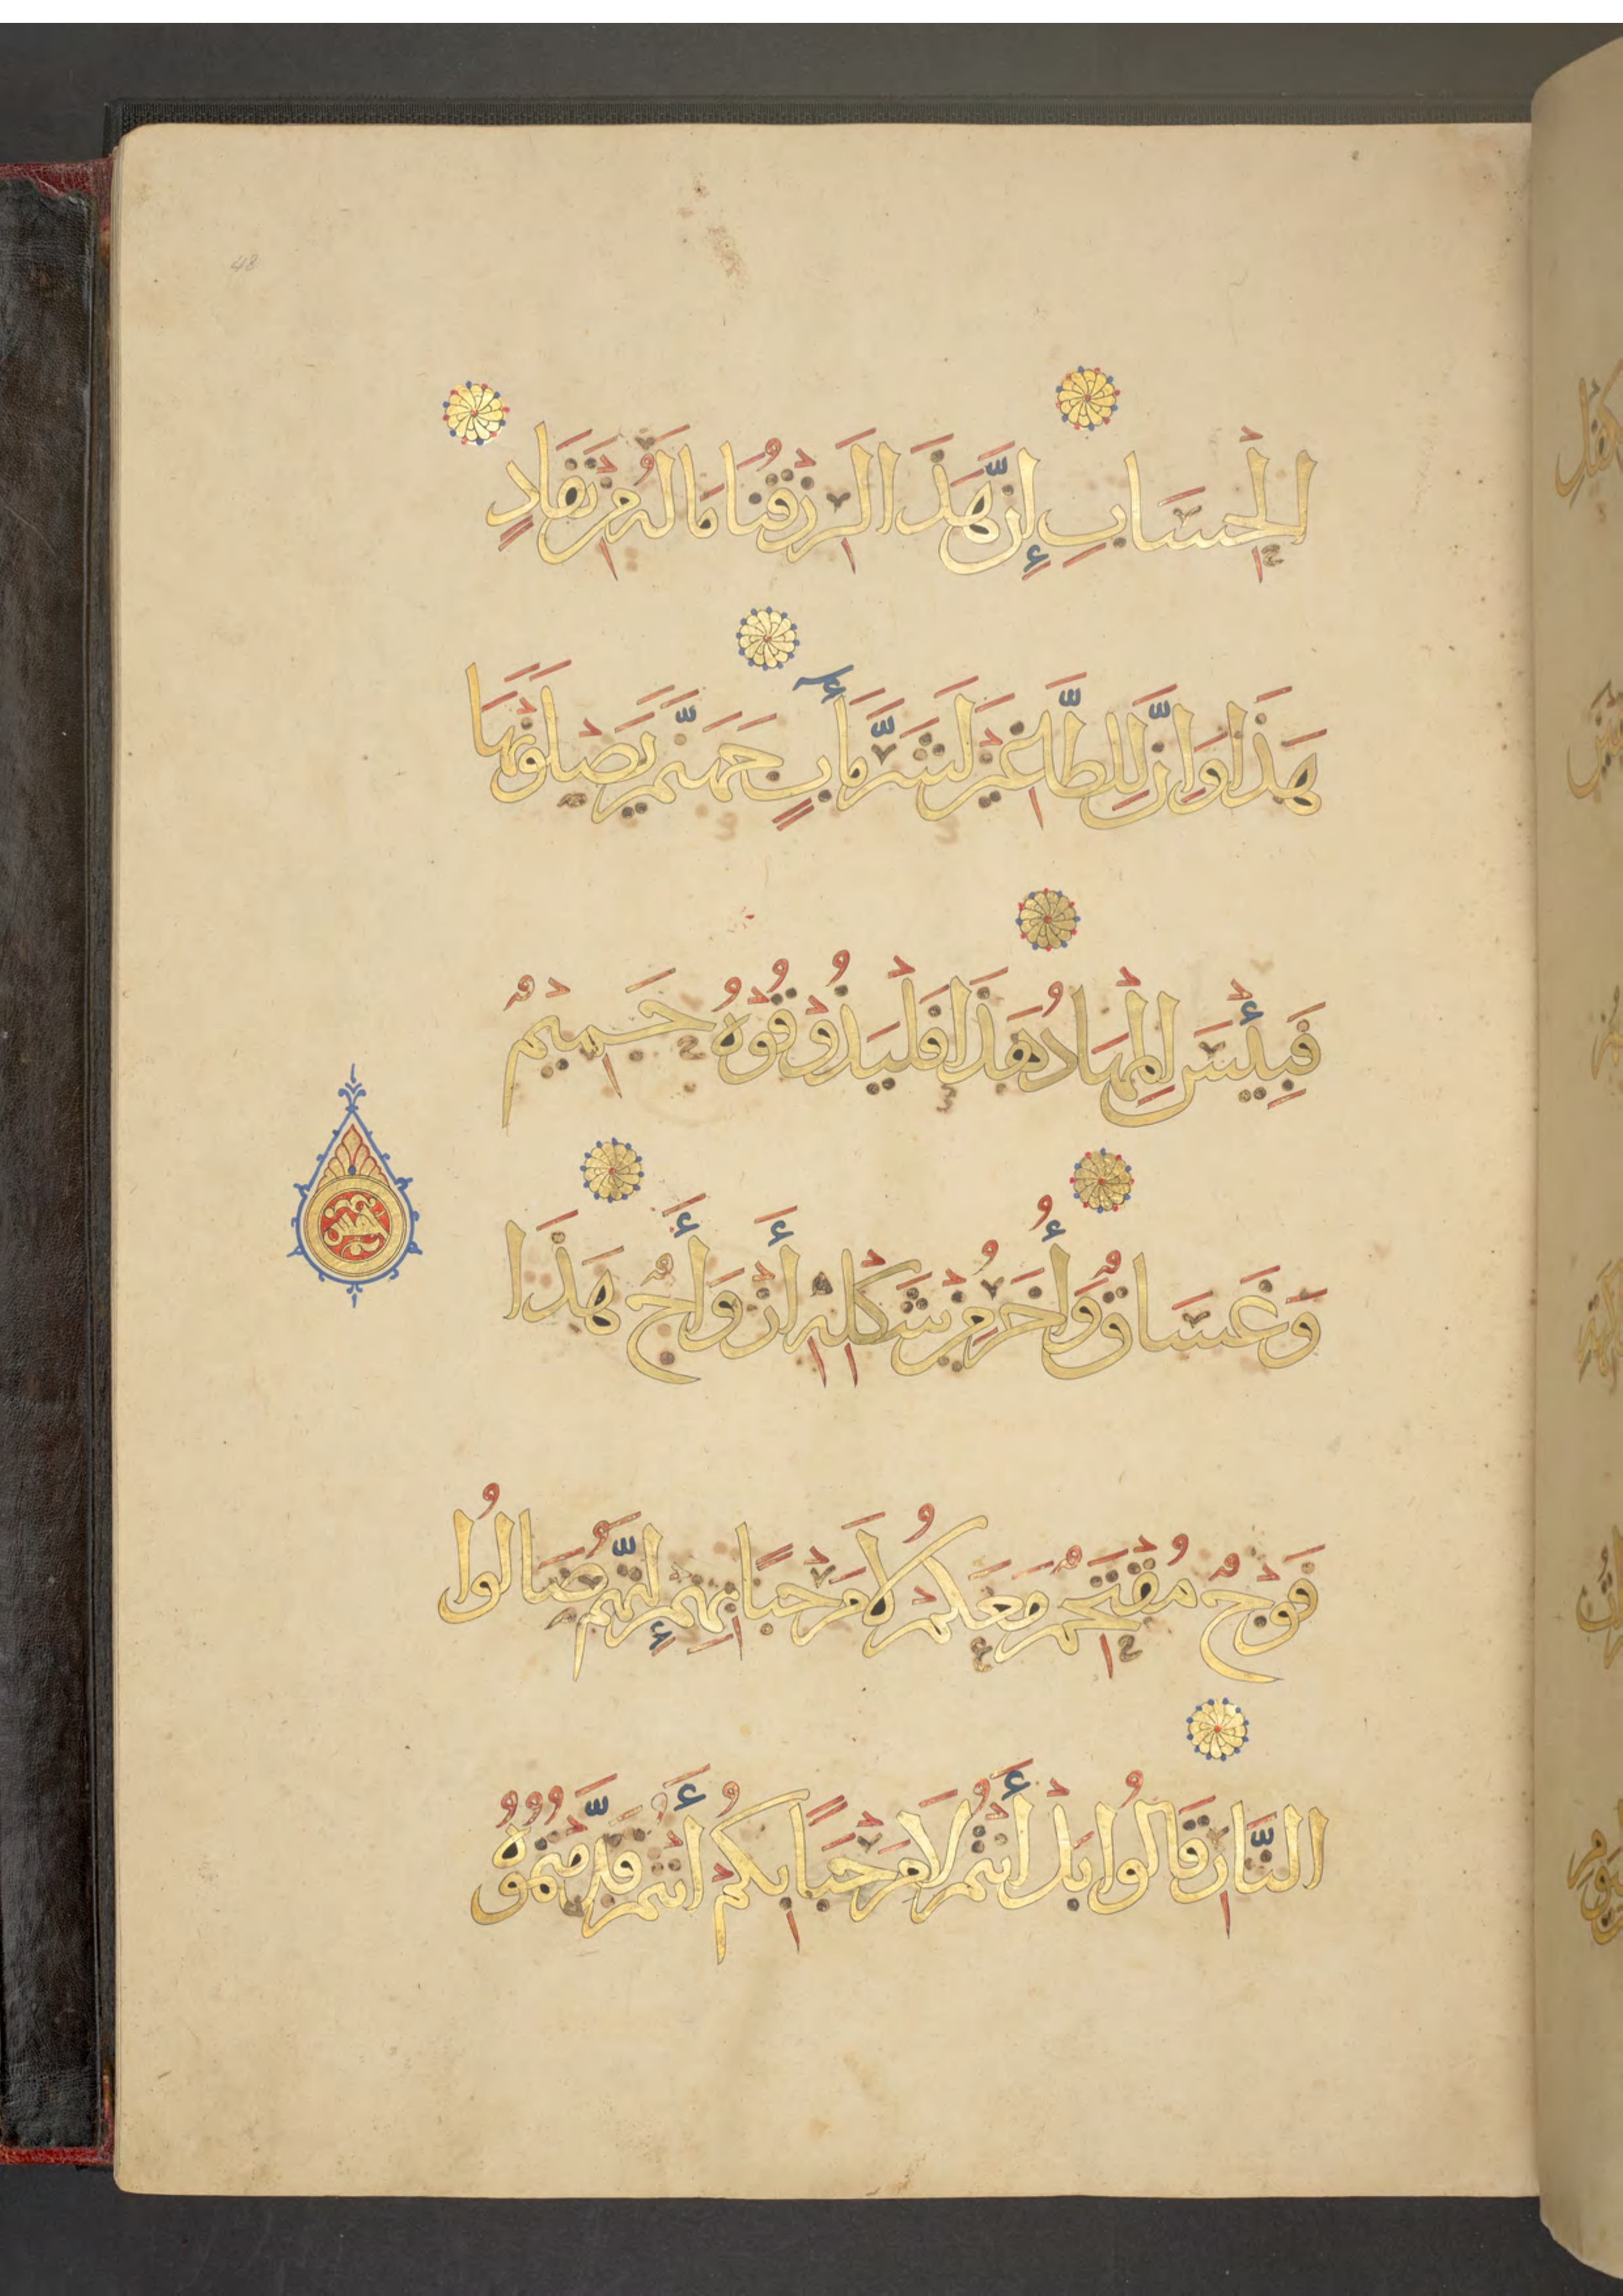 48
الْحِسَابِ إِنَّ هَذَا لَرِزْقُنَا مَا لَهُ مِنْ نَفَادٍ
هَذَا وَإِنَّ لِلطَّاغِينَ لَشَرَّ مَآبٍ جَهَنَّمَ يَصْلَوْنَهَا
فَبِئْسَ الْمِهَادُ هَذَا فَلْيَذُوقُوهُ حَمِيمٌ
وَغَسَاقٌ وَأُخَرُ مِنْ شَكْلِهِ أَزْوَاجٌ هَذَا
فَوْجٌ مُقْتَحِمٌ مَعَكُمْ لَا مَرْحَبًا بِهِمْ إِنَّهُمْ صَالُوا
النَّارِ قَالُوا بَلْ أَنْتُمْ لَا مَرْحَبًا بِكُمْ أَنْتُمْ قَدَّمْتُمُوهُ